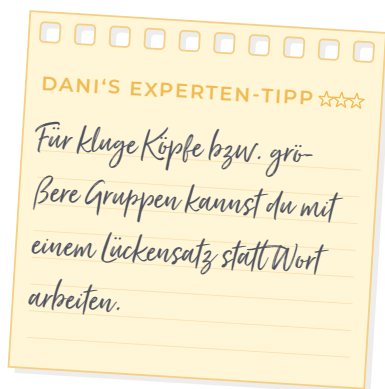 DANI‘S EXPERTEN-TIPP
Für kluge Köpfe bzw. grö-
ßere Gruppen kannst du mit
einem Lückensatz statt Wort
arbeiten.